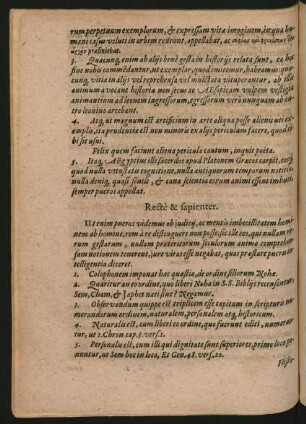 rum perpetuam exemplorum, & expressam vita imaginem, in qua ho-
mines casus veluti in orbem redeunt, appellabat, ac
3. Quacunq, enim ab alijs benè gesta in historijs relata sunt, ea hoc
fine nobis commendantur, ut exemplar, quod imitemur, habeamus: qua ve-
cunq, vitia in alijs vel reprehensa vel mulctata vituperantur, ab illis
animum avocant historia non secus ac Aesopicam vulpem vestigia
animantium ad leonem ingressorum, egressorum verò nunquam ab an-
tro leonino arcebant.
4. Atq, ut magnum est artificium in arte aliqua posse alienis uti ex-
emplis, ita prudentia est non minoris ex alijs periculum facere, quod ti-
bi sit usui.
Felix quem faciunt aliena pericula cautum, inquit poeta.
5. Itaq, Aegyptius ille sacerdos apud Platonem Graecos carpit, eò
quod nulla vetustatis cognitione, nulla antiquorum temporum notitia,
nulla deniq, quasi senili, & cana scientia eorum animi essent imbuti,
semper pueros appellat.
Rectè & sapienter.
Ut enim pueros videmus ob judicij, ac mentis imbecillitatem homi-
nem ab homine, rem à re distinguere non posse: sic ille eos, qui nullam re-
rum gestarum, nullam praeteritorum seculorum animo comprehen-
sam notionem tenerent, jure quasi in se negabat, quas prastare pueros in-
telligentia diceret.
1. Colophonem imponat hac quaestio, de ordine filiorum Nohae.
2. Quaritur an eo ordine, quo liberi Nohae in S.S. Biblijs recensentur,
Sem, Cham, & Japhet nati sint? Negamus.
3. Observandum quippe est triplicem esse capitum in scriptura nu-
merandorum ordinem, naturalem, personalem atq, historicum.
4. Naturalis est, cum liberi eo ordine, quo fuerunt editi, numeran-
tur, ut 1. Chron. cap. 3. vers. 1.
5. Personalis est, cum illi qui dignitate sunt superiores, primo loco po-
nuntur, ut Sem hoc in loco, Et Gen. 48. vers. 20.
Histor